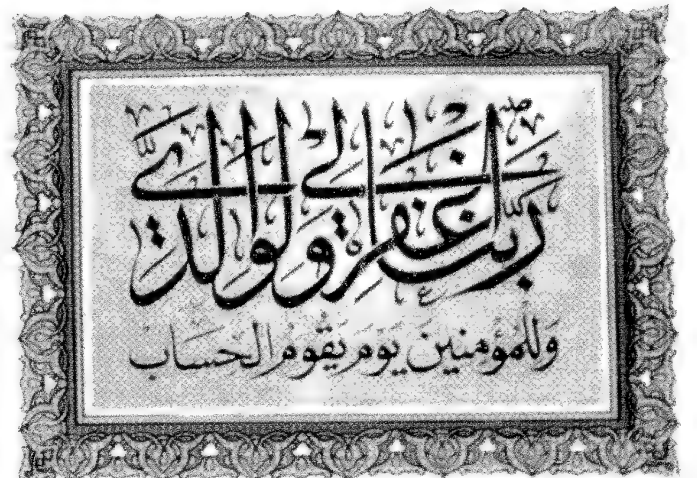 ربنا اغفر لي ولوالدي
وللمؤمنين يوم يقوم الحساب